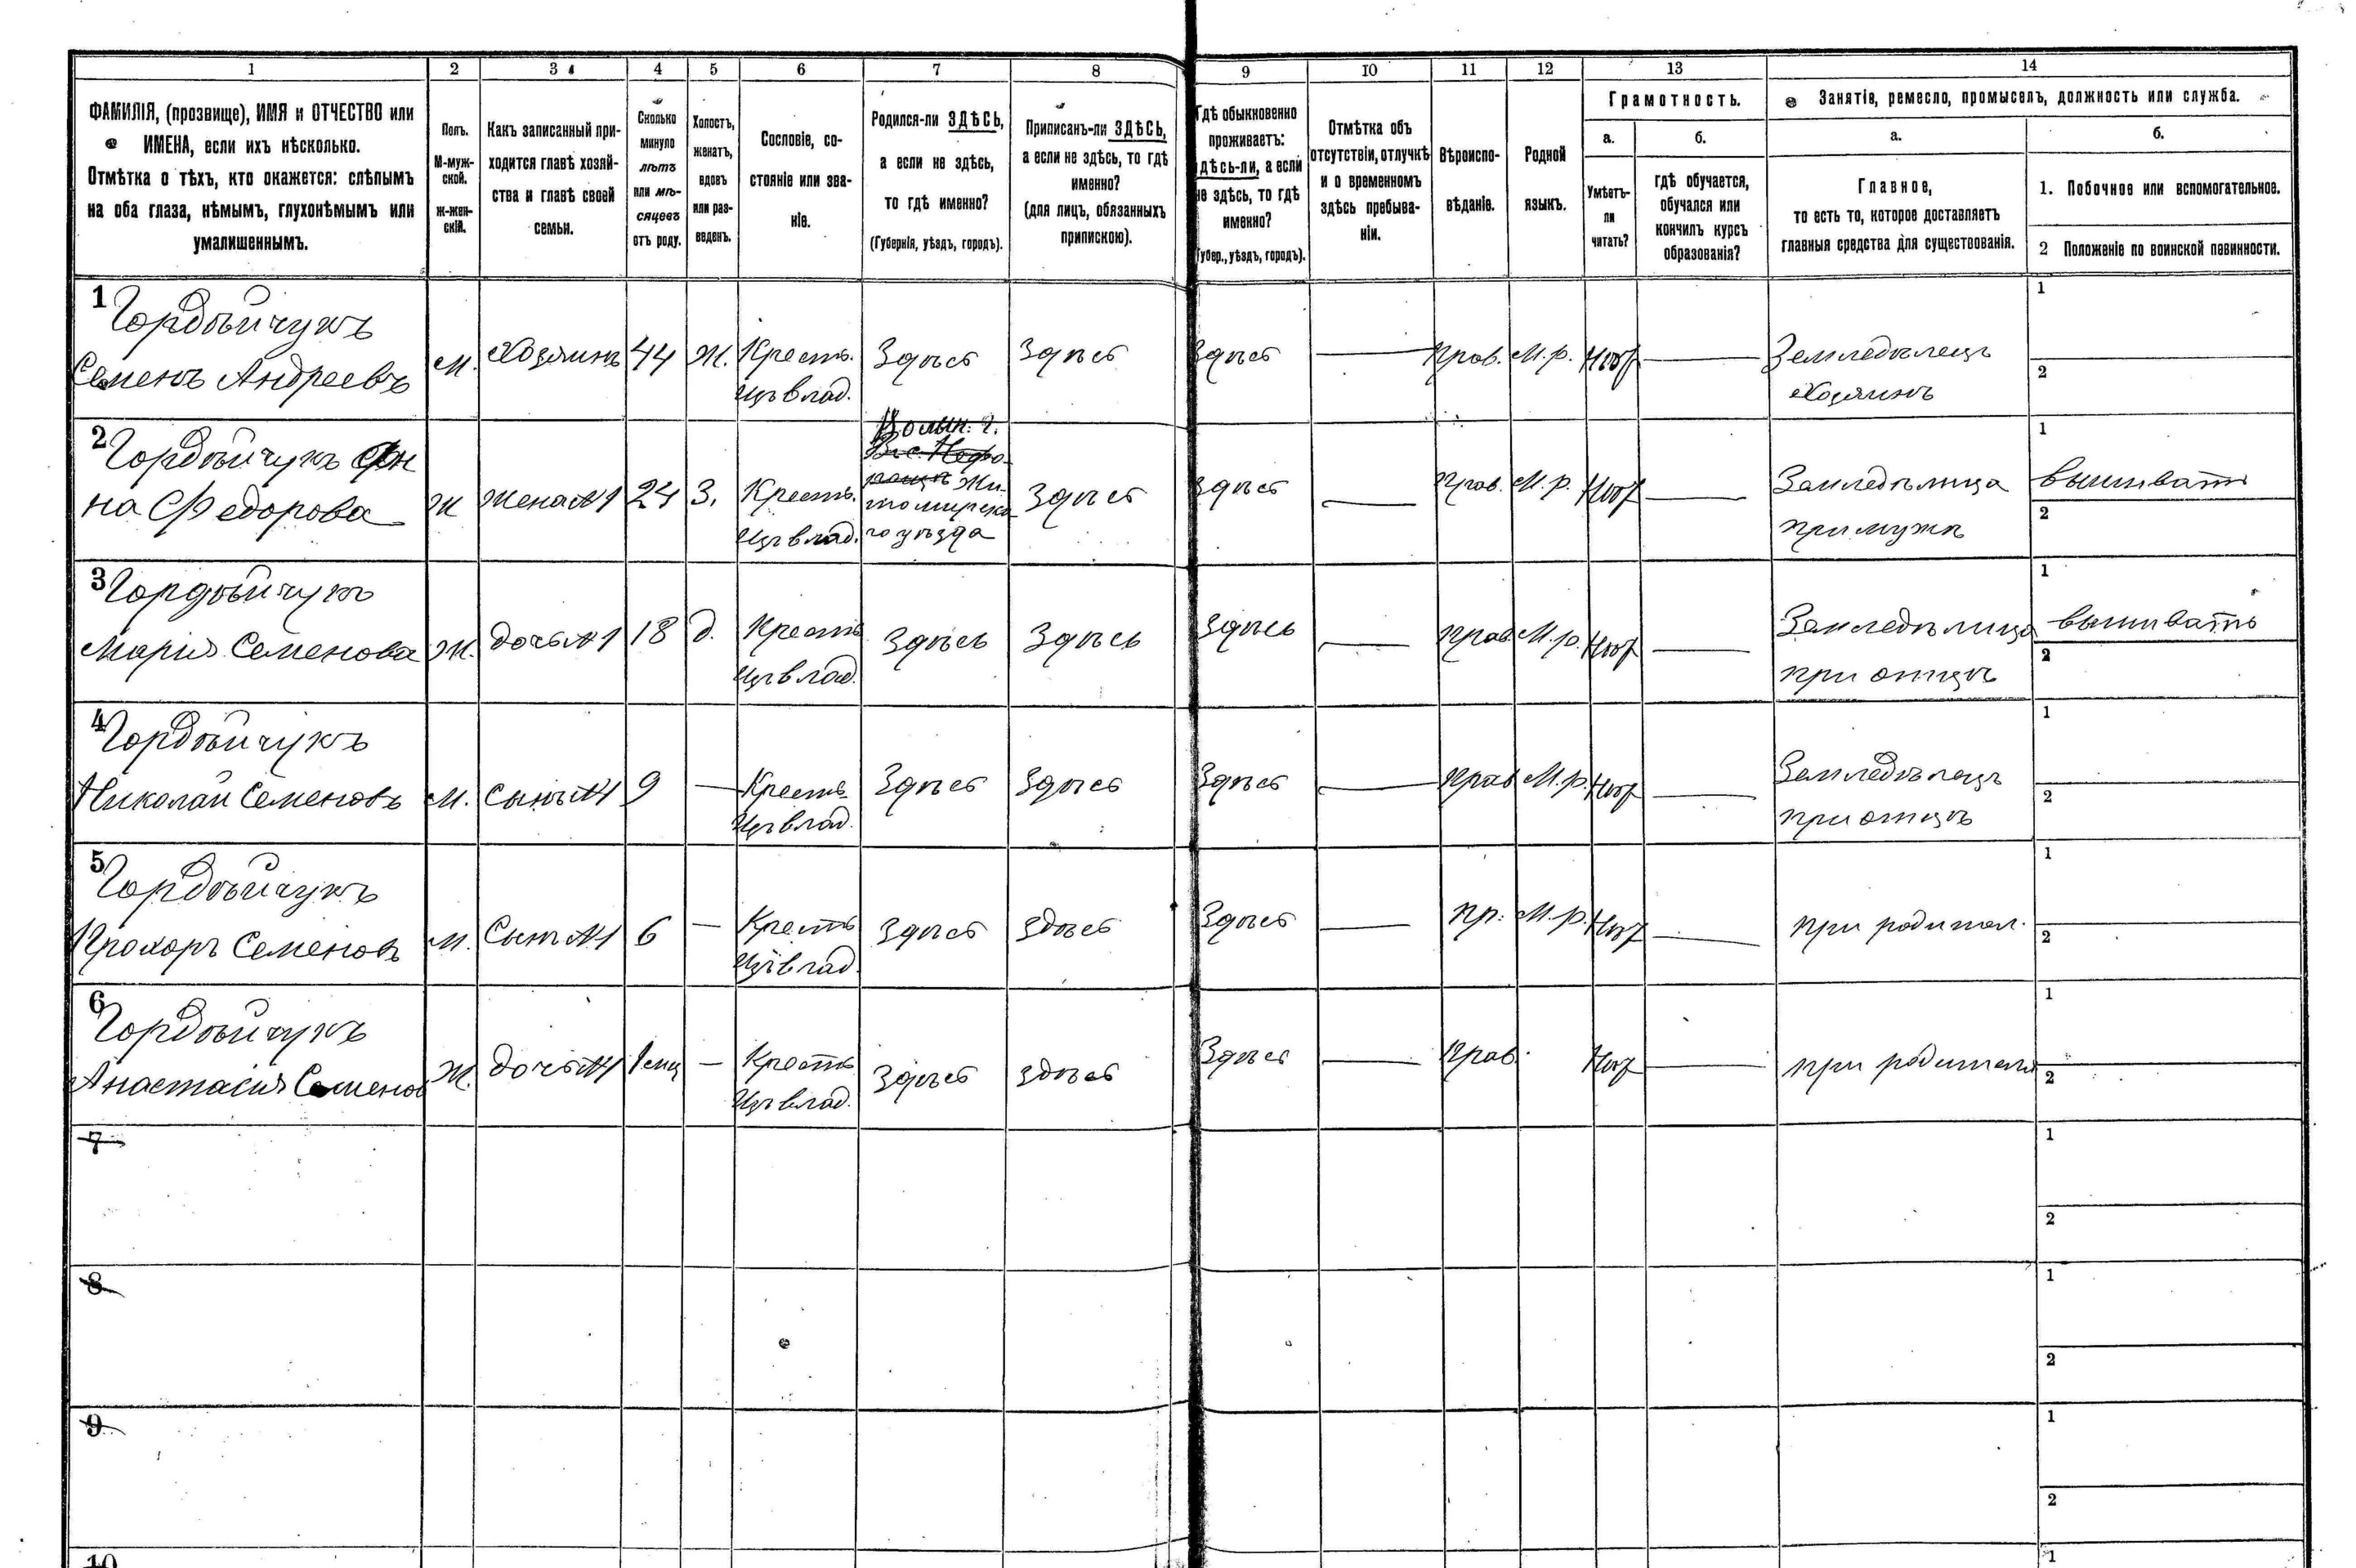 1 2 3 4 5 6 7 8 9 10 11 12 13 14
ФАМИЛІЯ, (прозвище), ИМЯ и ОТЧЕСТВО или
ИМЕНА, если ихъ нѣсколько.
Отмѣтка о тѣхъ, кто окажется: слѣпымъ
на оба глаза, нѣмымъ, глухонѣмымъ или
умалишеннымъ.
Полъ.
М-муж-
ской.
Ж-жен-
скій.
Какъ записанный при-
ходится главѣ хозяй-
ства и главѣ своей
семьи.
Сколько
минуло
лѣтъ
или мѣ-
сяцевъ
отъ роду.
Холостъ,
женатъ,
вдовъ
или раз-
веденъ.
Сословіе, со-
стояніе или зва-
ніе.
Родился-ли ЗДѢСЬ,
а если не здѣсь,
то гдѣ именно?
(Губернія, уѣздъ, городъ).
Приписанъ-ли ЗДѢСЬ,
а если не здѣсь, то гдѣ
именно?
(для лицъ, обязанныхъ
припискою).
Гдѣ обыкновенно
проживаетъ:
здѣсь-ли, а если
не здѣсь, то гдѣ
именно?
(Губер., уѣздъ, городъ).
Отмѣтка объ
отсутствіи, отлучкѣ
и о временномъ
здѣсь пребыва-
ніи.
Вѣроиспо-
вѣданіе.
Родной
языкъ.
Грамотность.
а.
Умѣетъ-
ли
читать?
б.
гдѣ обучается,
обучался или
кончилъ курсъ
образованія?
Занятіе, ремесло, промыселъ, должность или служба.
а.
Главное,
то есть то, которое доставляетъ
главныя средства для существованія.
б.
1. Побочное или вспомогательное.
2 Положеніе по воинской повинности.
1 Гордѣйчукъ
Семенъ Андреевъ М. Хозяинъ 44 Ж. Крестъ. Здѣсь Здѣсь Здѣсь Прав. М.р. Земледѣлецъ 1
Изъ влад. Хозяинъ 2
2 Гордѣйчукъ Ан
на Федорова Ж Жена №1 24 З. Крестъ. Волын. г. Жи-
томирска
го уѣзда Здѣсь Здѣсь Прав. М.р. Земледѣлица 1 вышиватъ
Изъ влад. при мужѣ 2
3 Гордѣйчукъ
Марія Семенова Ж. дочь №1 18 д. Крестъ Здѣсь Здѣсь Здѣсь Прав. М.р. Земледѣлица 1 вышивать
Изъ влад. при отцѣ 2
4 Гордѣйчукъ
Николай Семеновъ М. Сынъ №1 9 Крестъ Здѣсь Здѣсь Здѣсь Прав М.р. Земледѣлецъ 1
Изъ влад. при отцѣ 2
5 Гордѣйчукъ
Прохоръ Семеновъ М. Сынъ №1 6 Крестъ Здѣсь Здѣсь Здѣсь Пр. М.р. при родител. 1
Изъ влад. 2
6 Гордѣйчукъ
Анастасія Семенов Ж. дочь №1 1 мц Крестъ Здѣсь Здѣсь Здѣсь Прав. при родители 1
Изъ влад. 2
7 1
2
8 1
2
9 1
2
10 1